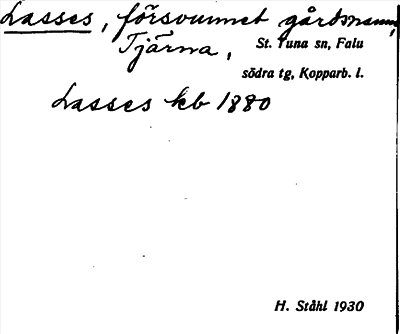 Lasses, försvunnet gårdsnamn,
Tjärna, St. Tuna sn, Falu
södra tg, Kopparb. l.
Lasses kb 1880
H. Ståhl 1930